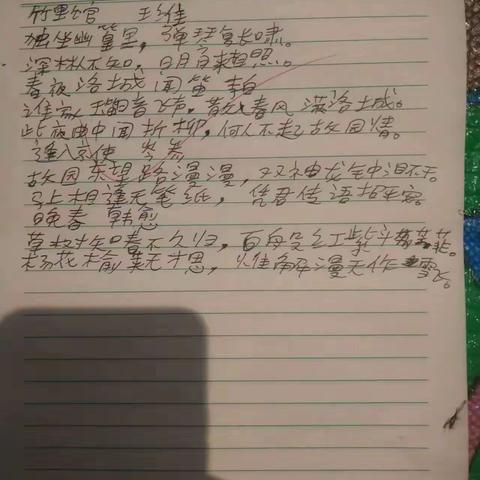 竹里馆 王维
独坐幽篁里，弹琴复长啸。
深林人不知，明月来相照。
春夜洛城闻笛 李白
谁家玉笛暗飞声，散入春风满洛城。
此夜曲中闻折柳，何人不起故园情。
逢入京使 岑参
故园东望路漫漫，双袖龙钟泪不干
马上相逢无笔纸，凭君传语报平安。
晚春 韩愈
草树知春不久归，百般红紫斗芳菲。
杨花榆荚无才思，惟解漫天作雪飞。